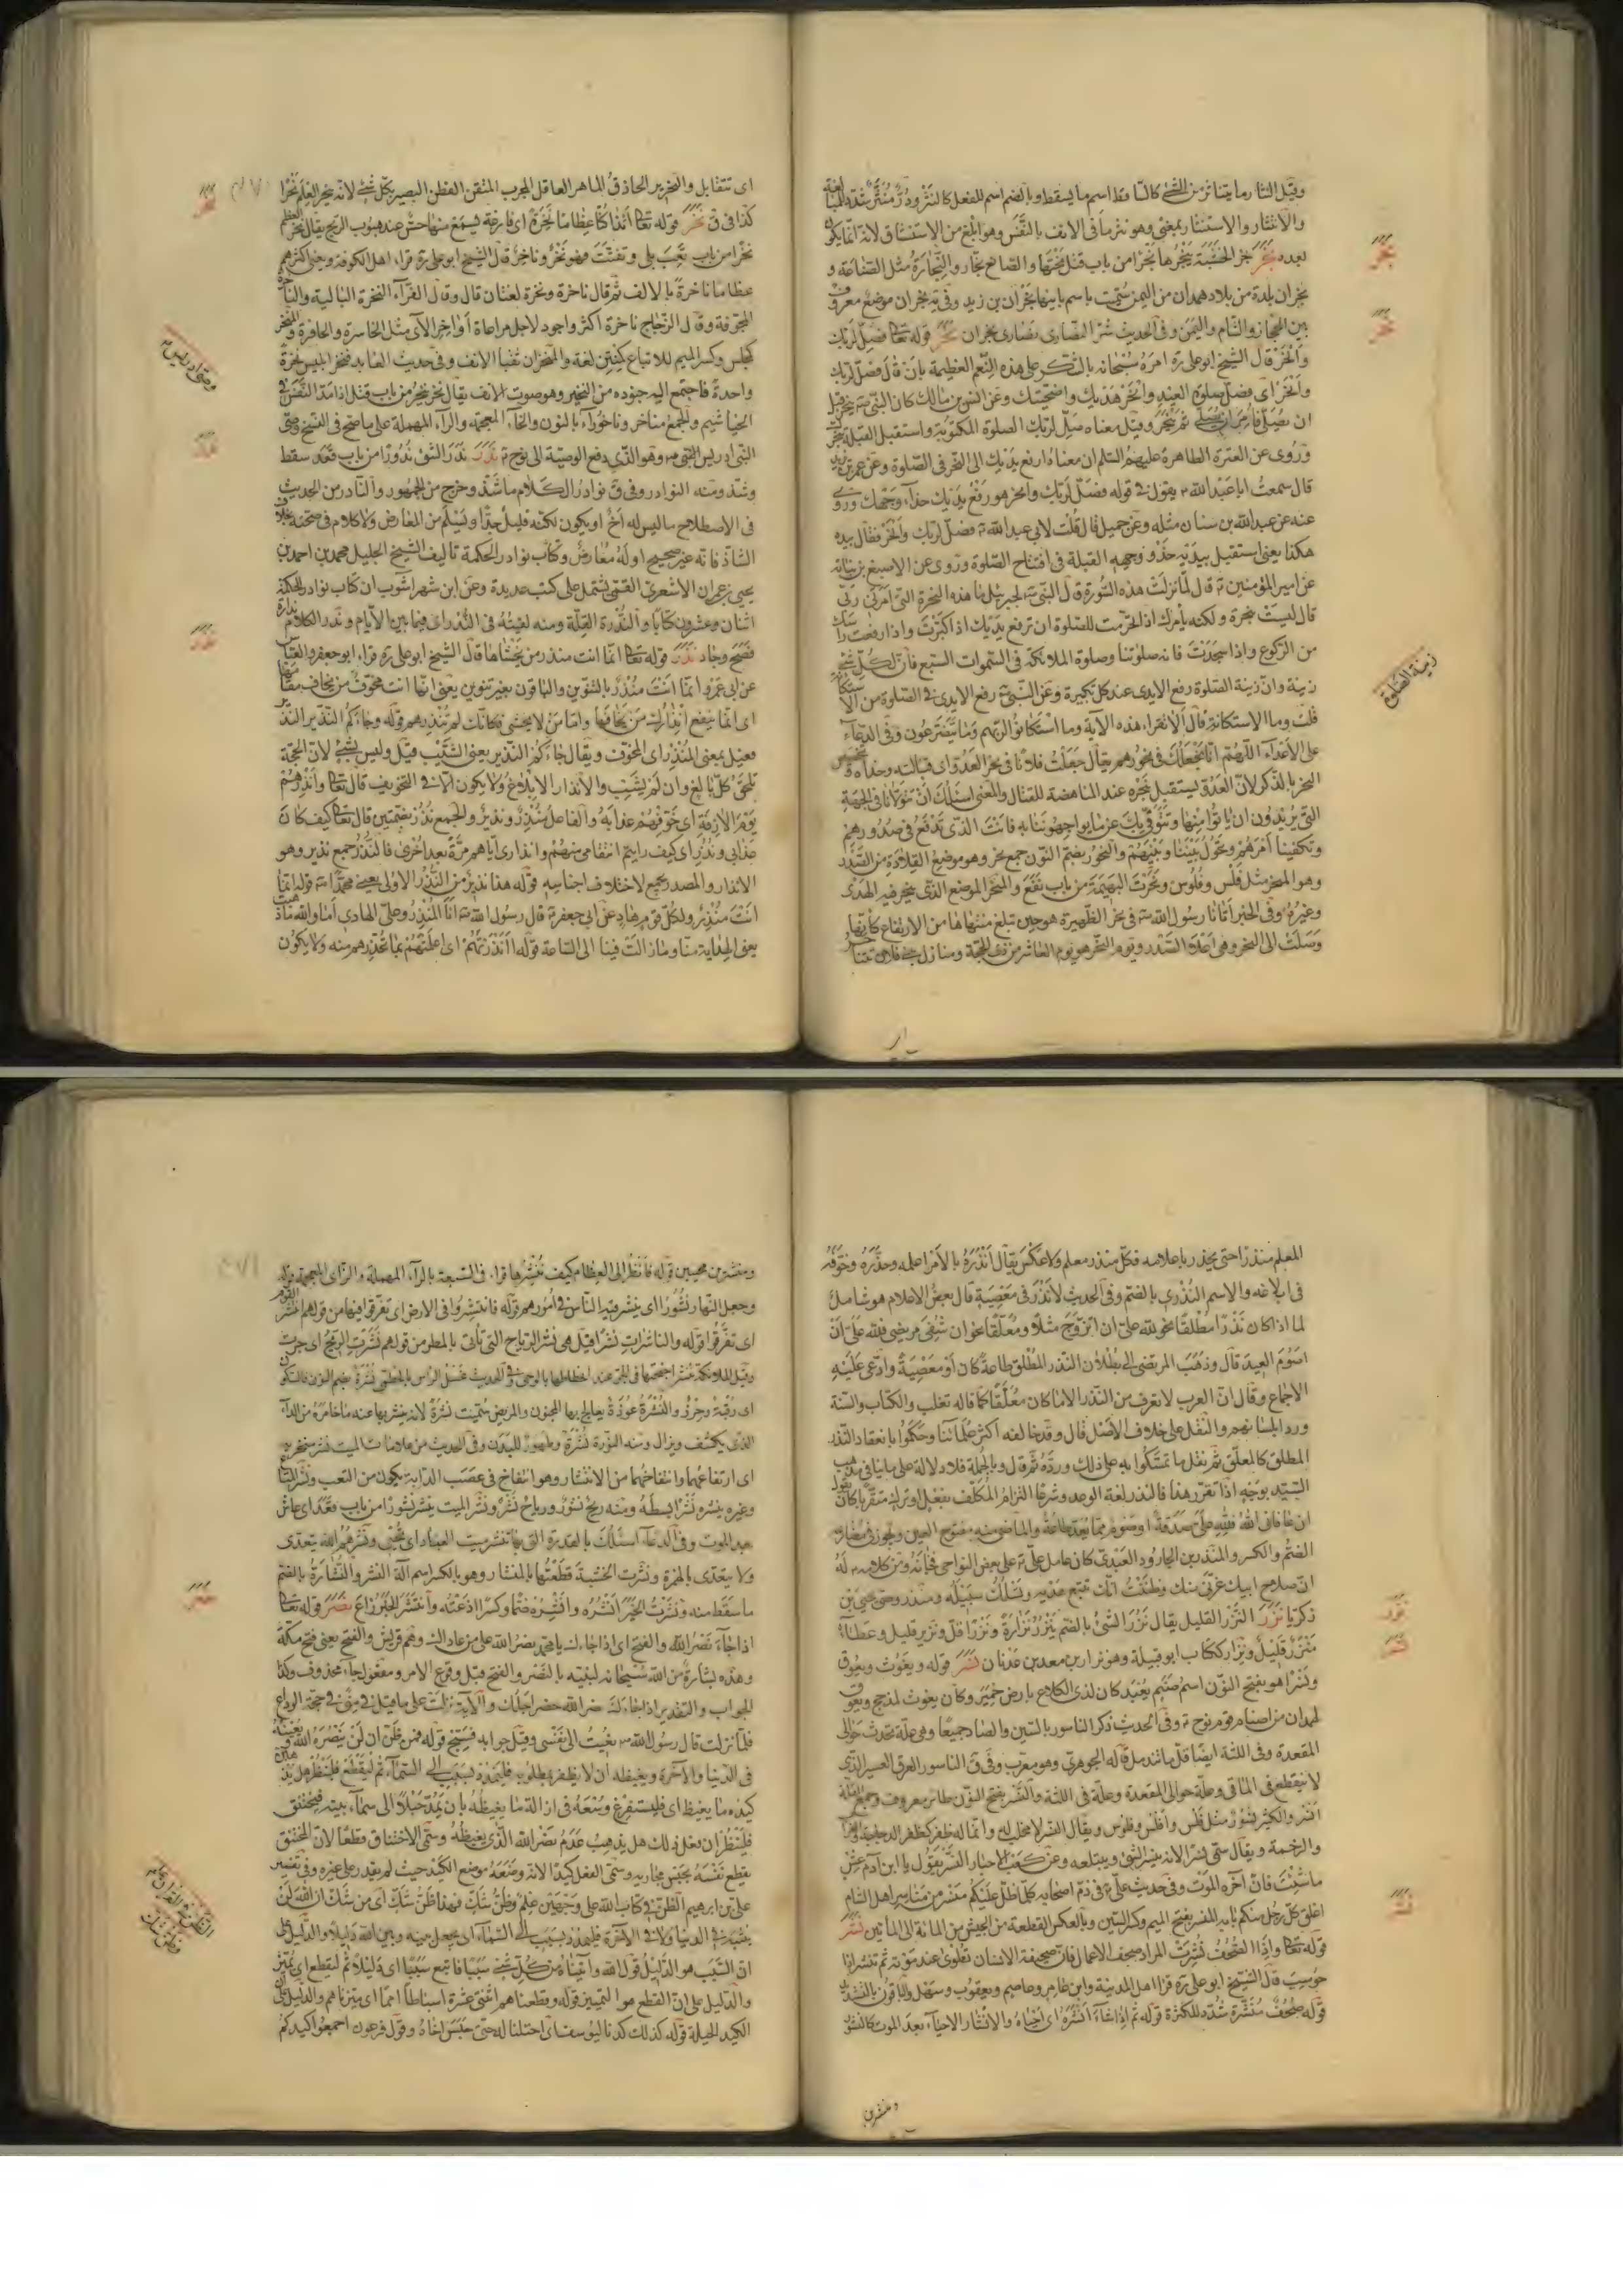 وقيل النثار ما يتناثر من الشئ كالسا قط اسم ما يسقط وبالضم اسم للفعل كالنثر ودُرٌّ مُنَثَّرٌ شدد للمبالغة
والانتثار والاستنثار بمعنى وهو نثر ما فى الانف بالنَّفَس وهو ابلغ من الاستنشاق لانه انما يكون
بعده نَجَرَ نجر الخشبة ينجُرُها نَجْرًا من باب قتل نحتها والصانع نجّار والنِّجَارَةُ مثل الصّناعة و
نجران بلدة من بلاد همدان من اليمن سُمّيت باسم بانيها نَجْرَان بن زيد وفى نجران موضع معروف
بين الحجاز والشام واليمن وفى الحديث شرّ النصارى نصارى نجران نَحَرَ قوله تعا فصلّ لربك
وانْحَر قال الشيخ ابو على ره امره سُبحانه بالشكر على هذه النّعم العظيمة بان قال فصلّ لربك
وانحر اى فصلّ صلوة العيد وانحر هديك واضحيتك وعن انس بن مالك كان النّبىّ ص ينحر قبل
ان يُصلّى فامر ان يصلى ثم ينحر وقيل معناه صلّ لربك الصلوة المكتوبة واستقبل القبلة بنحرك
ورُوى عن العترة الطاهرة عليهم السّلم ان معناه ارفع يديك الى النّحر فى الصّلوة وعن عمر بن يزيد
قال سمعت ابا عبد الله ع يقول فى قوله فصلّ لربك وانحر هو رفعُ يديك حذاء وجهك وروى
عنه عن عبد الله بن سنان مثله وعن جميل قال قلت لابى عبد الله ع فصل لربك وانحر فقال بيده
هكذا يعنى استقبل بيديه حَذْوَ وجهه القبلة فى افتتاح الصّلوة ورُوى عن الاصبغ بن نباتة
عن امير المؤمنين ع قال لمّا نزلت هذه السُّورة قال النّبىّ ص لجبرئيل ما هذه النحيرة التى امرنى ربّى
قال ليست بنحيرة ولكنه يأمرك اذا تحرّمت للصلوة ان ترفع يديك اذا كبّرت واذا رفعت راسك
من الركوع واذا سجدت فانه صلوتنا وصلوة الملائكة فى السّموات السّبع فان لكلّ شئ
زينة وانّ زينة الصّلوة رفع الايدى عند كل تكبيرة وعن النّبىّ ص رفع الايدى فى الصّلوة من الاستكانة
قلت وما الاستكانة قال الا تقراء هذه الآية وما استكانوا لربّهم وما يتضرّعون وفى الدعاء
على الأعداء اللّهمّ انا نجعلك فى نحورهم يقال جعلت فلانًا فى نحر العدوّ اى قبالته وحذاءه وتخصيص
النحر بالذكر لانّ العدوّ يستقبل بنحره عند المناهضة للقتال والمعنى اسئلك ان تتولّانا فى الجهة
التى يريدون ان ياتوا منها ونتوقّى بك عمّا يواجهوننا به فانت الذى تدفع فى صدورهم
وتكفينا امرهم وتحول بيننا وبينهم والنُّحور بضمّ النّون جمع نحر وهو موضع القلادة من الصّدر
وهو المنحر مثل فلس وفلوس ونحرت البهيمة من باب نفع والمنحر الموضع الذى ينحر فيه الهدى
وغيره وفى الخبر اتانا رسول الله ص فى نحر الظهيرة هو حين تبلغ منتهاها من الارتفاع كانّها
وصلت الى النحر وهى اعلا الصّدر ويوم النّحر هو يوم العاشر من ذى الحجّة ومنازل بنى فلان تتناحر
زينة الصلوة
اى تتقابل والنحرير الحاذقُ الماهر العاقل المجرب المتقن الفطن البصير بكلّ شئ لانه ينحر العلم نحرًا
كذا فى ق نَخَرَ قوله تعا ائذا كنّا عظاما نَخِرَةً اى فارغة يسمع منها حسّ عند هبوب الريح يقال نخر العظم
نخرًا من باب تَعِبَ بلى وتفتّت فهو نَخِرٌ وناخِرٌ قال الشيخ ابو على ره قراء اهل الكوفة وبعض اكثرهم
عظاما ناخرة بالالف ثم قال ناخرة ونخرة لغتان قال وقال الفرّاء النخرة البالية والناخرة
المجوّفة وقال الزجّاج ناخرة اكثر واجود لاجل مراعاة اواخر الآى مثل الخاسرة والحافرة والمنخر
كمجلس وكسر الميم للاتباع كمنتن لغة والمنخران ثقبا الانف وفى حديث العابد فنخر ابليس نخرةً
واحدة فاجتمع اليه جنوده من النخير وهو صوت الانف يقال نخر ينخر من باب قتل اذا مدّ النّفَس فى
الخياشيم والجمع مناخر وناخُوراء بالنون والخاء المعجمة والراء المهملة على ما صحّ فى النسخ وصىّ
النّبى ادريس النبىّ ع وهو الذى دفع الوصيّة الى نوح ع نَدَرَ ندر الشئ نُدورًا من باب قعد سقط
وشذّ ومنه النوادر وفى ق نوادر الكلام ما شذّ وخرج من الجمهور والنادر من الحديث
فى الاصطلاح ما ليس له اخٌ او يكون لكنه قليل جدًّا ويسلم من المعارض ولا كلام فى صحته بخلاف
الشاذ فانه غير صحيح او له معارض وكتاب نوادر الحكمة تاليف الشيخ الجليل محمد بن احمد بن
يحيى بن عمران الاشعرىّ القمّى يشتمل على كتب عديدة وعن ابن شهراشوب ان كتاب نوادر الحكمة
اثنان وعشرون كتابًا والنُّدْرَة القلّة ومنه لقيتُه فى النُّدْرَة اى فيما بين الأيّام وندر الكلام ندارة
فصح وجاد نَذَرَ قوله تعا انّما انت منذر من يخشاها قال الشيخ ابو على ره قراء ابو جعفر والعبّاس
عن ابى عمرو انّما انت منذرٌ بالتنوين والباقون بغير تنوين يعنى انّما انت مخوّف من يخاف مقامها
اى انّما ينفع انذارك من يخافها وامّا من لا يخشى فكانّك لم تنذرهم قوله وجاءكم النّذير النّذير
فعيل بمعنى المنذر اى المخوّف ويقال جاءكم النّذير يعنى الشّيب قيل وليس بشئ لانّ الحجّة
تلحق كلّ بالغ وان لم يشب والانذار الابلاغ ولا يكون الّا فى التخويف قال تعا وانذرهم
يوم الآزفة اى خوّفهم عذابه والفاعل منذر ونذير والجمع نُذُر بضمّتين قال تعا كيف كان
عذابى ونُذُر اى كيف رايتم انتقامى منهم وانذارى ايّاهم مرّة بعد اخرى فالنذر جمع نذير وهو
الانذار والمصدر يجمع لاختلاف اجناسه قوله هذا نذير من النّذر الاولى يعنى محمّدا ص قوله انّما
انت منذر ولكلّ قوم هاد عن ابى جعفر ع قال رسول الله ص انا المنذر وعلىّ الهادى اما والله ما ذهبت
يعنى الهداية منّا وما زالت فينا الى الساعة قوله أأنذرتهم اى اعلمتهم بما تحذّرهم منه ولا يكون
وصى ادريس ع
المعلم منذرًا حتى يحذر باعلامه فكل منذر معلم ولا عكس يقال انذره بالأمر اعلمه وحذّره وخوّفه
فى ابلاغه والاسم النُّذْرى بالضم وفى الحديث لا نذر فى معصية قال بعض الاعلام هو شامل
لما اذا كان نذرًا مطلقًا نحو لله علىّ ان اتزوّج مثلًا ومعلّقًا نحو ان شفى مريضى فلله علىّ ان
اصوم العيد قال وذهب المرتضى الى بطلان النّذر المطلق طاعةً كان او معصيةً وادّعى عليه
الاجماع وقال انّ العرب لا تعرف من النّذر الا ما كان معلّقًا كما قاله تغلب والكتاب والسنّة
وردا بلسانهم والنّقل على خلاف الأصل قال وقد خالفه اكثر علمائنا وحكموا بانعقاد النّذر
المطلق كالمعلّق ثم نقل ما تمسّكوا به على ذلك وردّه ثم قال وبالجملة فلا دلالة على ما ينافى مذهب
السّيّد بوجه اذا تقرّر هذا فالنذر لغة الوعد وشرعًا التزام المكلّف بفعل او ترك متقرّبا كان يقول
ان عافانى الله فلله علىّ صدقة او صوم ممّا يعدّ طاعة والماضى منه مفتوح العين ويجوز فى مضارعه
الضمّ والكسر والمنذر بن الجارود العبدىّ كان عامل علىّ ع على بعض النواحى فخانه ومن كلامه ع له
انّ صلاح ابيك غرّنى منك وظننت انّك تتبع هديه وتسلك سبيله ومنذر وصىّ يحيى بن
زكريا نَزَرَ النّزر القليل يقال نزُر الشئ بالضم ينزُر نزارةً ونزرًا قلّ ونزير قليل وعطاء
منزر قليل ونزار ككتاب ابو قبيلة وهو نزار بن معد بن عدنان نَسَرَ قوله ويغوث ويعوق
ونسرًا هو بفتح النّون اسم صنم يُعبد كان لذى الكلاع بارض حمير وكان يغوث لمذحج ويعوق
لهمدان من اصنام قوم نوح ع وفى الحديث ذكر الناسور بالسّين والصّاد جميعًا وهى علّة تحدث حوالى
المقعدة وفى اللثة ايضًا قلّ ما تندمل قاله الجوهرى وهو معرّب وفى ق الناسور العرق الغبر الذى
لا ينقطع فى المآقى وعلّة حوالى المقعدة وعلّة فى اللثة والنّسر بفتح النّون طائر معروف وجمع القلّة
انسر والكثير نسور مثل فلس وافلس وفلوس ويقال النسر لا مخلب له وانما له ظفر كظفر الدجاجة والغراب
والرخمة ويقال سمّى نسرا لانه ينسر الشئ ويبتلعه وعن كعب الاحبار النّسر يقول يا ابن آدم عش
ما شئت فانّ آخره الموت وفى حديث علىّ ع فى ذمّ اصحابه كلّما اظلّ عليكم منسر من مناسر اهل الشام
اغلق كلّ رجل منكم بابه المنسر بفتح الميم وكسر السّين وبالعكس القطعة من الجيش من المائة الى المأتين نَشَرَ
قوله تعا واذا الصّحف نشرت المراد صحف الاعمال فانّ صحيفة الانسان تطوى عند موته ثم تنشر اذا
حوسب قال الشيخ ابو على ره قرا اهل المدينة وابن عامر وعاصم ويعقوب وسهل والباقون بالتشديد
قوله صحف منشّرة شدّد للكثرة قوله ثم اذا شاء انشره اى احياه والانشار الاحياء بعد الموت كالنشور
ومنشرين
ومنشرين محيين قوله فانظر الى العظام كيف ننشرها قراء فى السبعة بالراء المهملة والزاى المعجمة قوله
وجعل النّهار نشورًا اى ينشر فيه الناس فى امورهم قوله فانتشروا فى الارض اى تفرّقوا فيها من قولهم انتشر القوم
اى تفرّقوا قوله والناشرات نشرًا قيل هى نشر الرياح التى تأتى بالمطر من قولهم نشرت الرّيح اى جرت
وقيل الملائكة تنشر اجنحتها فى الجوّ عند انحطاطها بالوحى وفى الحديث غسل الراس بالخطمى نُشرة بضم النون فالسكون
اى رقية وحرز والنُّشرة عوذة يعالج بها المجنون والمريض سمّيت نشرة لانه ينشر بها عنه ما خامره من الداء
الذى يكشف ويزال ومنه النّورة نشرة وطهور للبدن وفى الحديث من علامات الميت نشر منخريه
اى ارتفاعهما وانتفاخهما من الانتشار وهو انتفاخ فى عصب الدّابة يكون من التعب ونشر المتاع
وغيره ينشره نشرًا بسطه ومنه ريح نشور ورياح نُشُر ونشر الميت ينشر نشورًا من باب قعد اى عاش
بعد الموت وفى الدعاء اسئلك بالقدرة التى بها تنشر ميت العباد اى تحيى ونشرهم الله يتعدى
ولا يتعدّى بالهمزة ونشرت الخشبة قطعتها بالمنشار وهو بالكسر اسم آلة النشر والنشارة بالضم
ما سقط منه ونشرت الخبر انشُره وانشِره ضمّا وكسرًا اذعته وانتشر الخبر ذاع نَصَرَ قوله تعا
اذا جاء نصر الله والفتح اى اذا جاءك يا محمد نصر الله على من عاداك وهم قريش والفتح يعنى فتح مكّة
وهذه بشارة من الله سبحانه لنبيّه بالنصر والفتح قبل وقوع الامر ومفعول جاء محذوف وكذا
الجواب والتقدير اذا جاءك نصر الله حضر اجلك والآية نزلت على ما قيل فى منى فى حجّة الوداع
فلمّا نزلت قال رسول الله ص نعيت الىّ نفسى وقيل جوابه فسبّح قوله فمن ظنّ ان لن ينصره الله ويعينه
فى الدّنيا والآخرة ويغيظه ان لا يظفر بمطلوبه فليمدد بسبب الى السّماء ثم ليقطع فلينظر هل يذهبن
كيده ما يغيظ اى فليستفرغ وسعه فى ازالة ما يغيظه بان يمدّ حبلًا الى سماء بيته فيختنق
فلينظر ان فعل ذلك هل يذهب عدم نصر الله الذى يغيظه وسمّى الاختناق قطعًا لانّ المختنق
يقطع نفسه بحبس مجاريه وسمّى الفعل كيدًا لانه وضعه موضع الكيد حيث لم يقدر على غيره وفى تفسير
على بن ابرهيم الظنّ فى كتاب الله على وجهين ظنّ علم وظنّ شكّ فهذا ظنّ شكّ اى من شكّ ان الله لن
يثيبه فى الدنيا ولا فى الآخرة فليمدد بسبب الى السّماء اى يجعل بينه وبين الله دليلًا والدّليل على
انّ السّبب هو الدّليل قول الله وآتيناه من كلّ شئ سببا فاتبع سببا اى دليلًا ثم ليقطع اى يميّز
والدّليل على انّ القطع هو التّمييز قوله وقطعناهم اثنتى عشرة اسباطًا امما اى ميّزناهم والدّليل على انّ
الكيد الحيلة قوله كذلك كدنا ليوسف اى احتلنا له حتى حبس اخاه وقول فرعون اجمعوا كيدكم